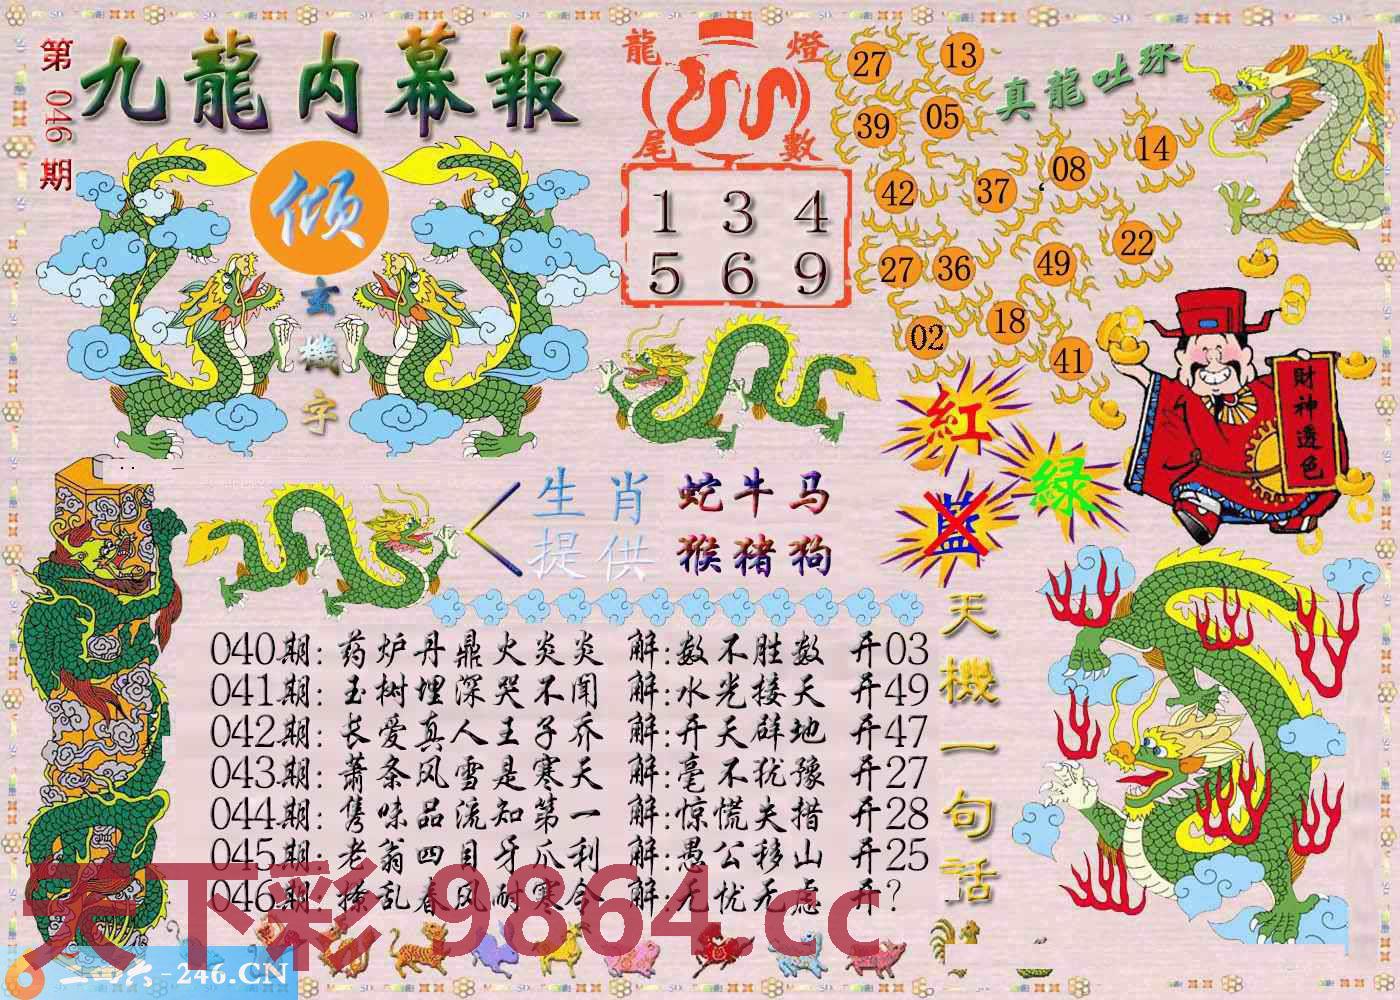 第046期
九龍内幕報
倾
玄機字
龍燈尾數
1 3 4
5 6 9
27 13
39 05
真龍吐珠
14
08
42 37
22
27 36 49
02 18
41
財神透色
紅
绿
蓝
生肖 蛇牛马
提供 猴猪狗
天機一句話
040期: 药炉丹鼎火炎炎 解:数不胜数 开03
041期: 玉树埋深哭不闻 解:水光接天 开49
042期: 长爱真人王子乔 解:开天辟地 开47
043期: 萧条风雪是寒天 解:毫不犹豫 开27
044期: 隽味品流知第一 解:惊慌失措 开28
045期: 老翁四目牙爪利 解:愚公移山 开25
046期: 撩乱春风耐寒令 解:无忧无虑 开?
天下彩 9864.cc
二四六-246.CN